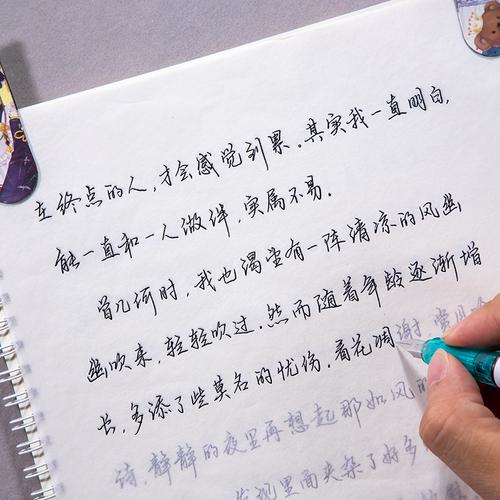 在终点的人,才会感觉到累.其实我一直明白,
能一直和一人做伴,实属不易.
曾几何时,我也渴望有一阵清凉的风幽
幽吹来,轻轻吹过.然而随着年龄逐渐增
长,多添了些莫名的忧伤,看花凋谢,赏月
诗,静静的夜里再想起那如风的
发现里面夹杂了好多